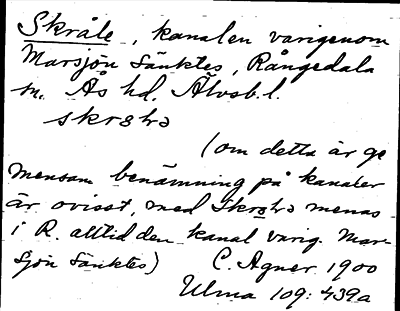 Skråle, kanalen varigenom
Marsjön sänktes, Rångedala
sn. Ås hd. Älvsb. l.
skrɔlɔ
(om detta är ge
mensam benämning på kanaler
är ovisst, med skrɔlɔ menas
i R. alltid den kanal varig. Mar-
sjön sänktes) C. Agner 1900
Ulma 109: 439a